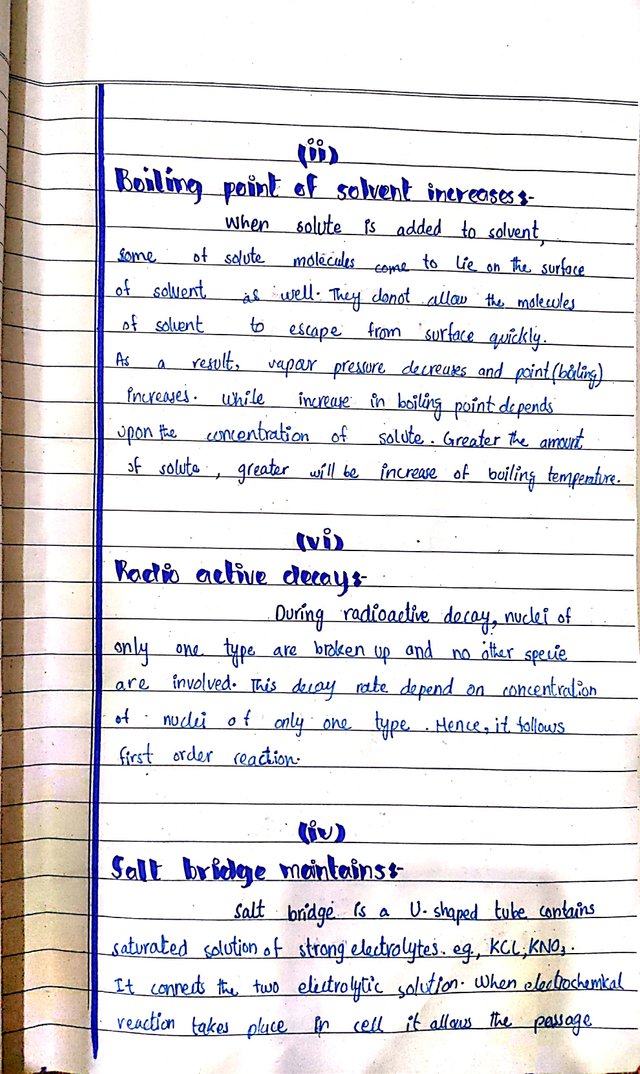 (ii)
Boiling point of solvent increases:-
When solute is added to solvent,
some of solute molecules come to lie on the surface
of solvent as well. They donot allow the molecules
of solvent to escape from surface quickly.
As a result, vapour pressure decreases and point (boiling)
increases. While increase in boiling point depends
upon the concentration of solute. Greater the amount
of solute, greater will be increase of boiling temperature.
(vi)
Radio active decay:-
During radioactive decay, nuclei of
only one type are broken up and no other specie
are involved. This decay rate depend on concentration
of nuclei of only one type. Hence, it follows
first order reaction.
(iv)
Salt bridge maintains:-
Salt bridge is a U-shaped tube contains
saturated solution of strong electrolytes. eg, KCl, KNO3.
It connects the two electrolytic solution. When electrochemical
reaction takes place in cell it allows the passage